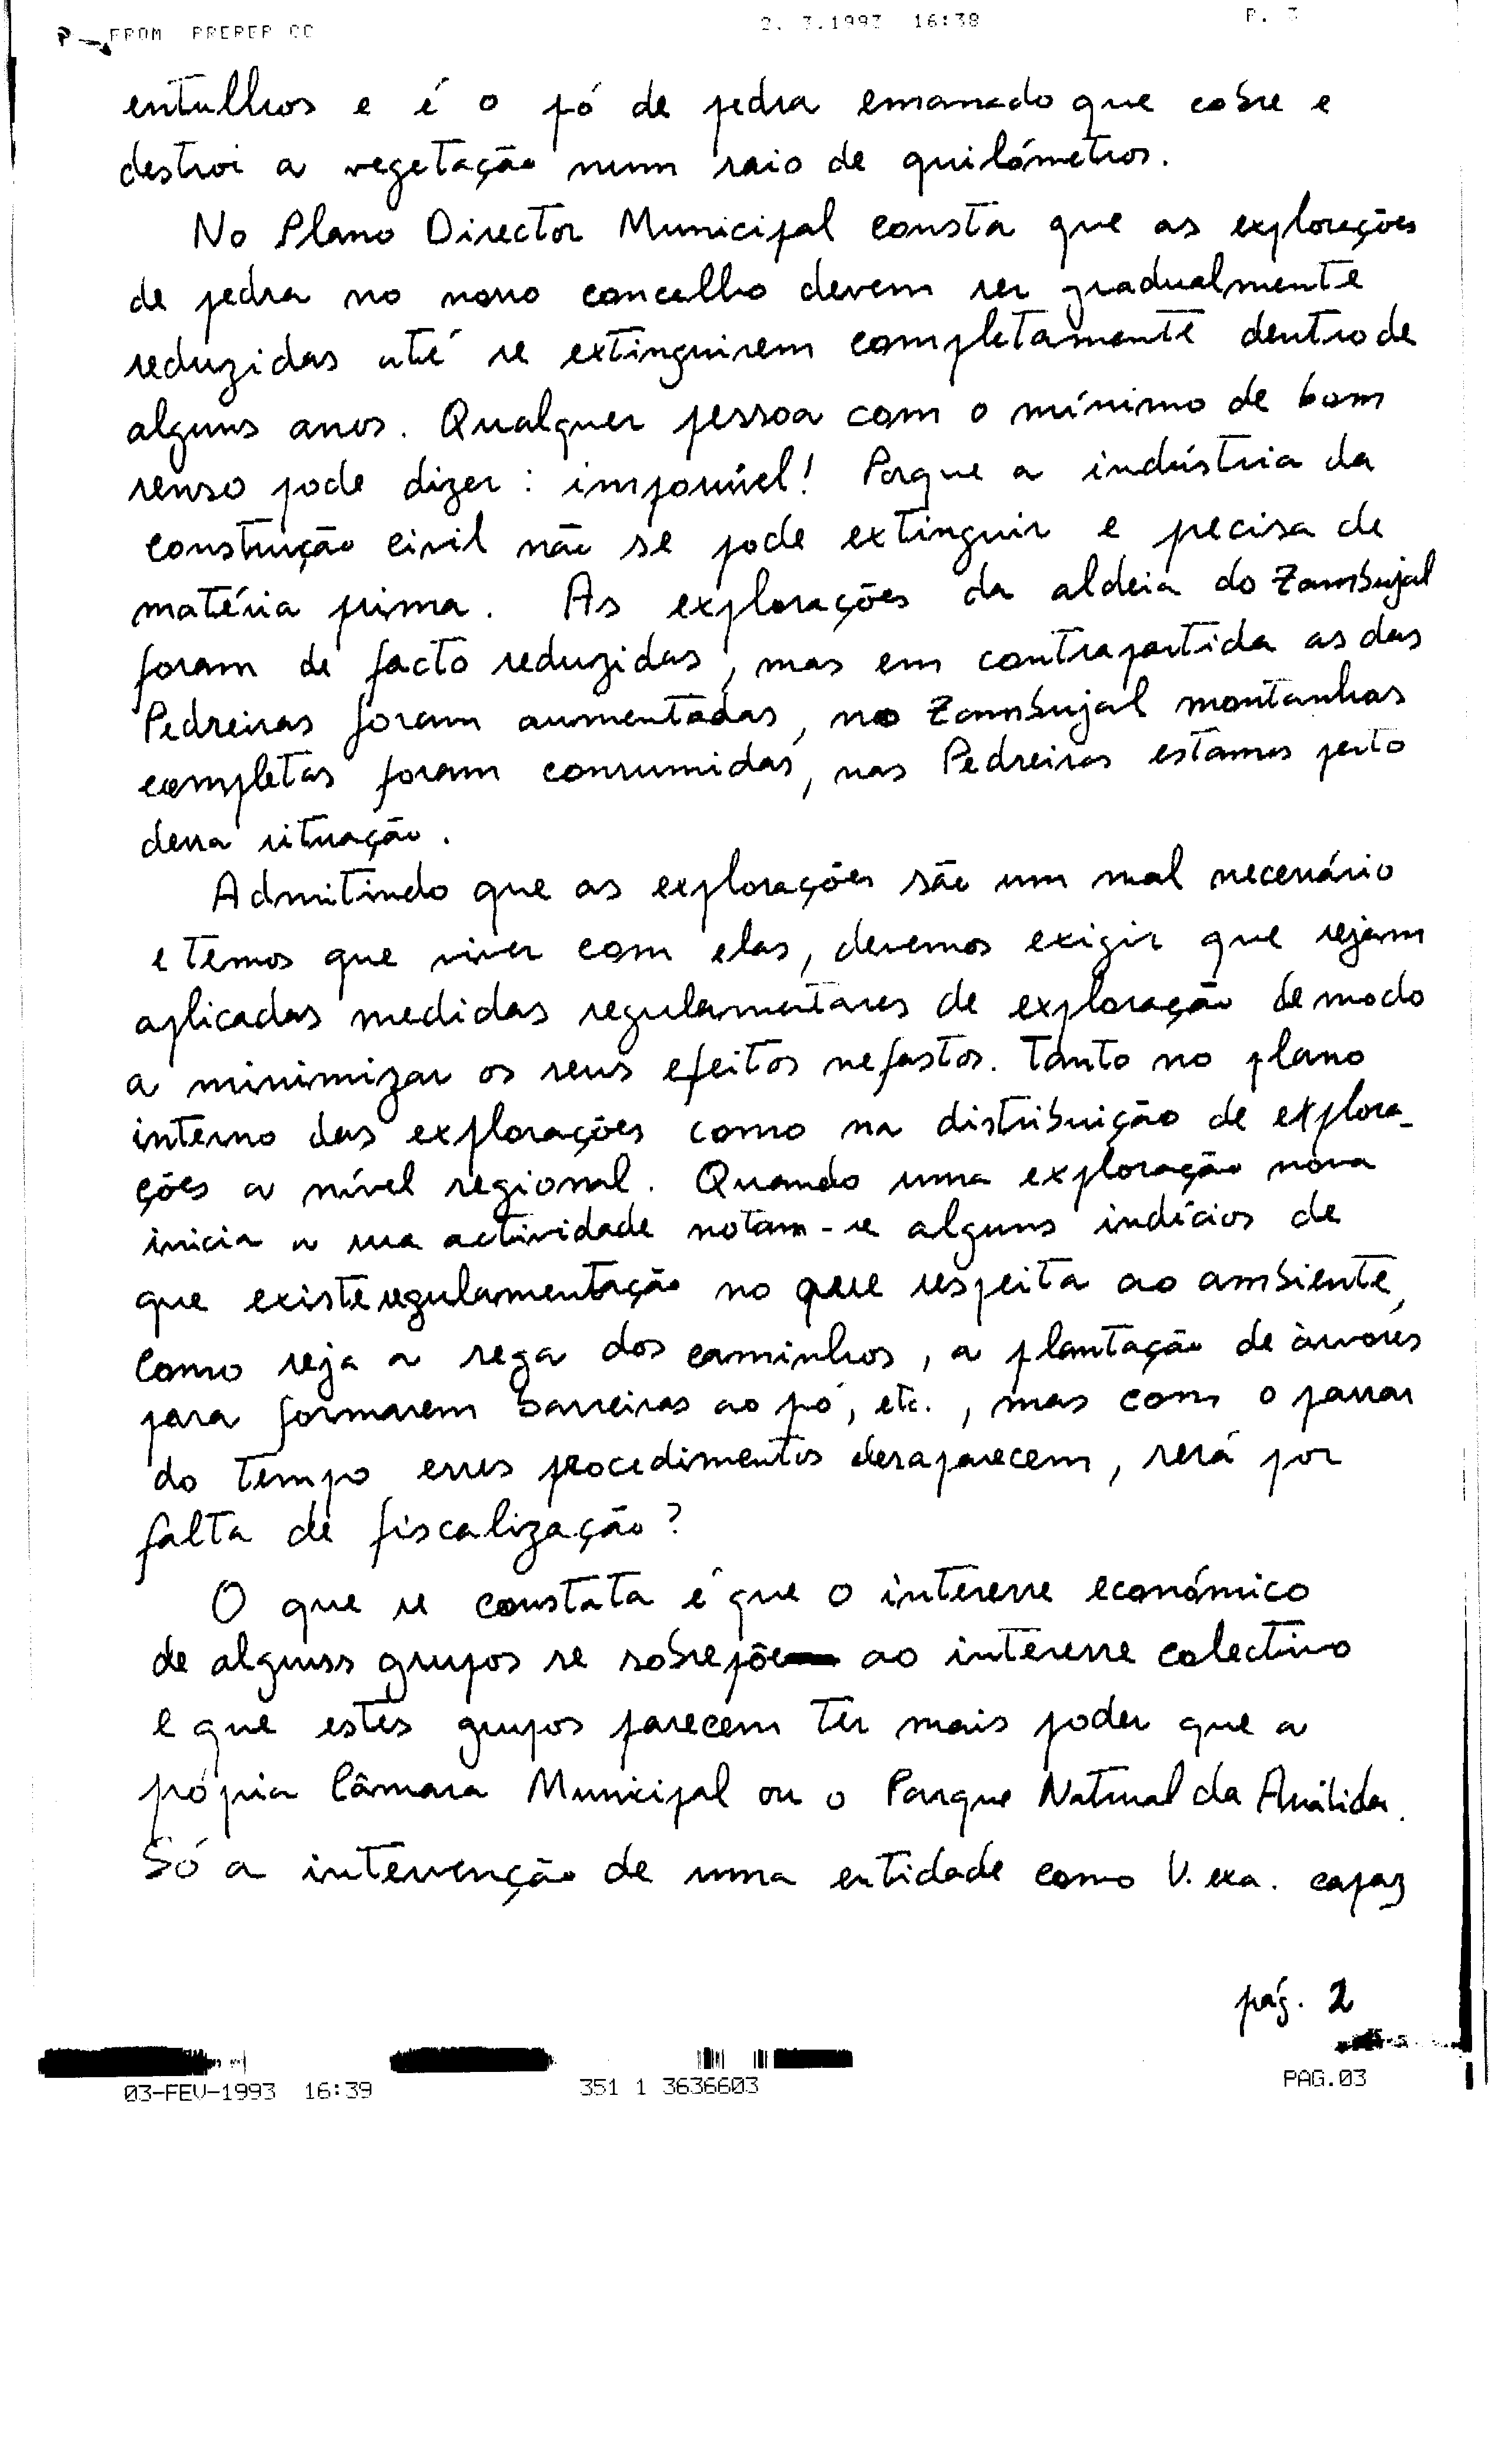 FROM PREREP CC 2. 3.1993 16:38 P. 3
entulhos e é o pó de pedra emanado que cobre e
destroi a vegetação num raio de quilómetros.
No Plano Director Municipal consta que as explorações
de pedra no nosso concelho devem ser gradualmente
reduzidas até se extinguirem completamente dentro de
alguns anos. Qualquer pessoa com o mínimo de bom
senso pode dizer : impossível! Porque a indústria da
construção civil não se pode extinguir e precisa de
matéria prima. As explorações da aldeia do Zambujal
foram de facto reduzidas, mas em contrapartida as das
Pedreiras foram aumentadas, no Zambujal montanhas
completas foram consumidas, nas Pedreiras estamos perto
dessa situação.
Admitindo que as explorações são um mal necessário
e temos que viver com elas, devemos exigir que sejam
aplicadas medidas regulamentares de exploração de modo
a minimizar os seus efeitos nefastos. Tanto no plano
interno das explorações como na distribuição de explora-
ções a nível regional. Quando uma exploração nova
inicia a sua actividade notam-se alguns indícios de
que existe regulamentação no que respeita ao ambiente,
como seja a rega dos caminhos, a plantação de àrvores
para formarem barreiras ao pó, etc., mas com o passar
do tempo esses procedimentos desaparecem, será por
falta de fiscalização?
O que se constata é que o interesse económico
de alguns grupos se sobrepõe ao interesse colectivo
e que estes grupos parecem ter mais poder que a
própria Câmara Municipal ou o Parque Natural da Arrábida.
Só a intervenção de uma entidade como V. exa. capaz
pág. 2
03-FEV-1993 16:39 351 1 3636603 PAG.03